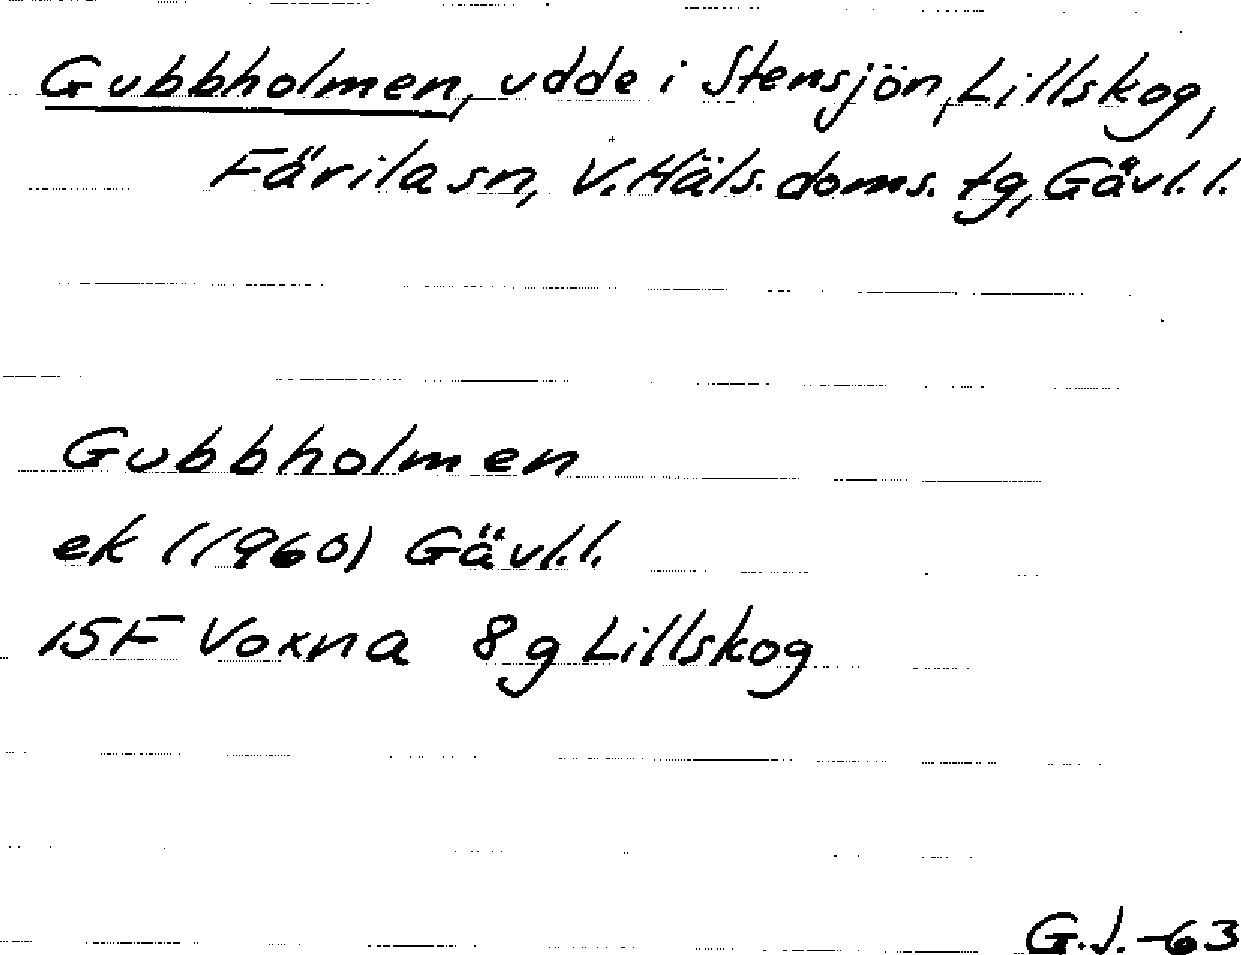 Gubbholmen, udde i Stensjön, Lillskog,
Färila sn, V. Häls. doms. tg, Gävl. l.
Gubbholmen
ek (1960) Gävl. l.
15F Voxna 8g Lillskog
G.J. -63